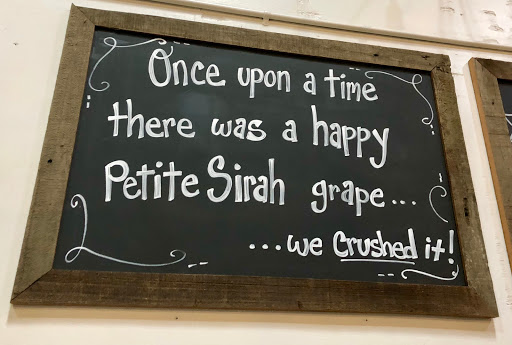 Once upon a time
there was a happy
Petite Sirah grape...
...we Crushed it!